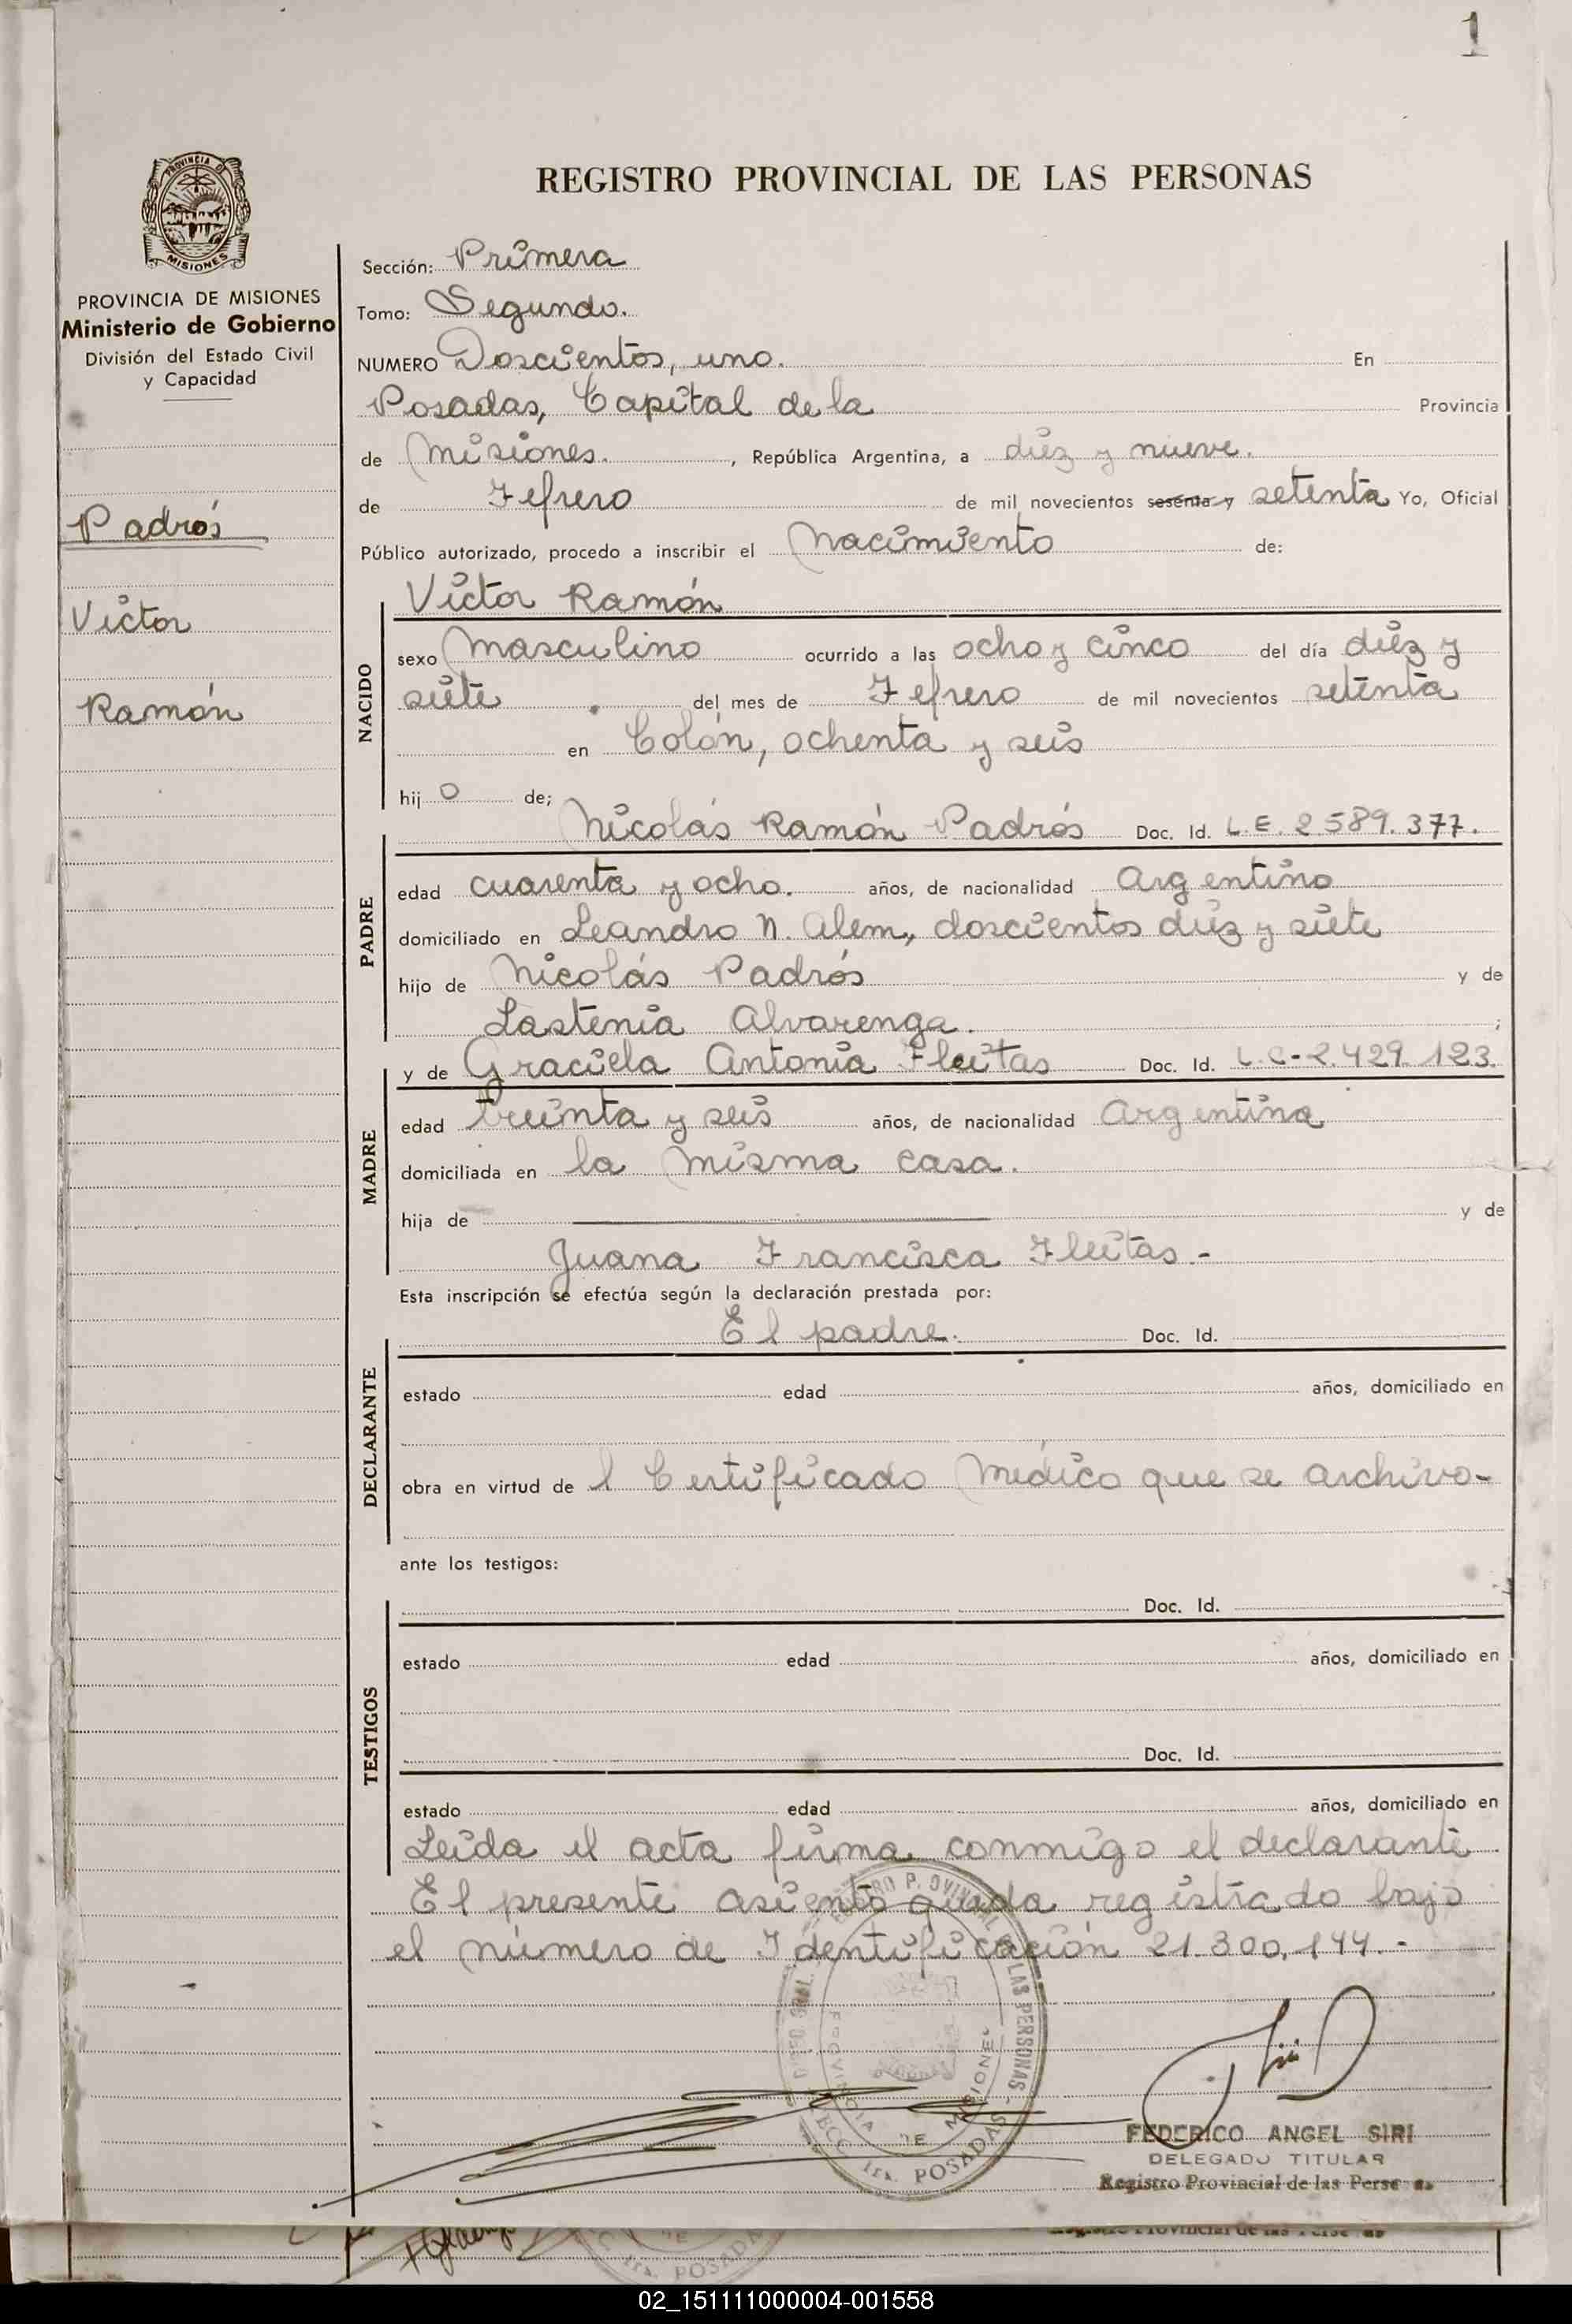 1
PROVINCIA
MISIONES
PROVINCIA DE MISIONES
Ministerio de Gobierno
División del Estado Civil
y Capacidad
Padrós
Víctor
Ramón
REGISTRO PROVINCIAL DE LAS PERSONAS
Sección: Primera
Tomo: Segundo.
NUMERO Doscientos, uno. En
Posadas, Capital de la Provincia
de Misiones. , República Argentina, a diez y nueve.
de Febrero de mil novecientos sesenta y setenta Yo, Oficial
Público autorizado, procedo a inscribir el Nacimiento de:
Víctor Ramón
NACIDO
sexo Masculino ocurrido a las ocho y cinco del día diez y
siete del mes de Febrero de mil novecientos setenta
en Colón, ochenta y seis
hij o de;
Nicolás Ramón Padrós Doc. Id. L.E. 2589.377.
PADRE
edad cuarenta y ocho. años, de nacionalidad Argentino
domiciliado en Leandro N. Alem, doscientos diez y siete
hijo de Nicolás Padrós y de
Lastenia Alvarenga. ;
y de Graciela Antonia Fleitas Doc. Id. L.C-2.429.123.
MADRE
edad treinta y seis años, de nacionalidad Argentina
domiciliada en la misma casa.
hija de y de
Juana Francisca Fleitas.-
Esta inscripción se efectúa según la declaración prestada por:
El padre. Doc. Id.
DECLARANTE
estado edad años, domiciliado en
obra en virtud de l Certificado Médico que se archivo-
ante los testigos:
Doc. Id.
TESTIGOS
estado edad años, domiciliado en
Doc. Id.
estado edad años, domiciliado en
Leída el acta firma conmigo el declarante
El presente asiento queda registrado bajo
el número de Identificación 21.300.144.-
LAS PERSONAS
PROVINCIA DE MISIONES
POSADAS
FEDERICO ANGEL SIRI
DELEGADO TITULAR
Registro Provincial de las Perso as
POSADA
02_151111000004-001558